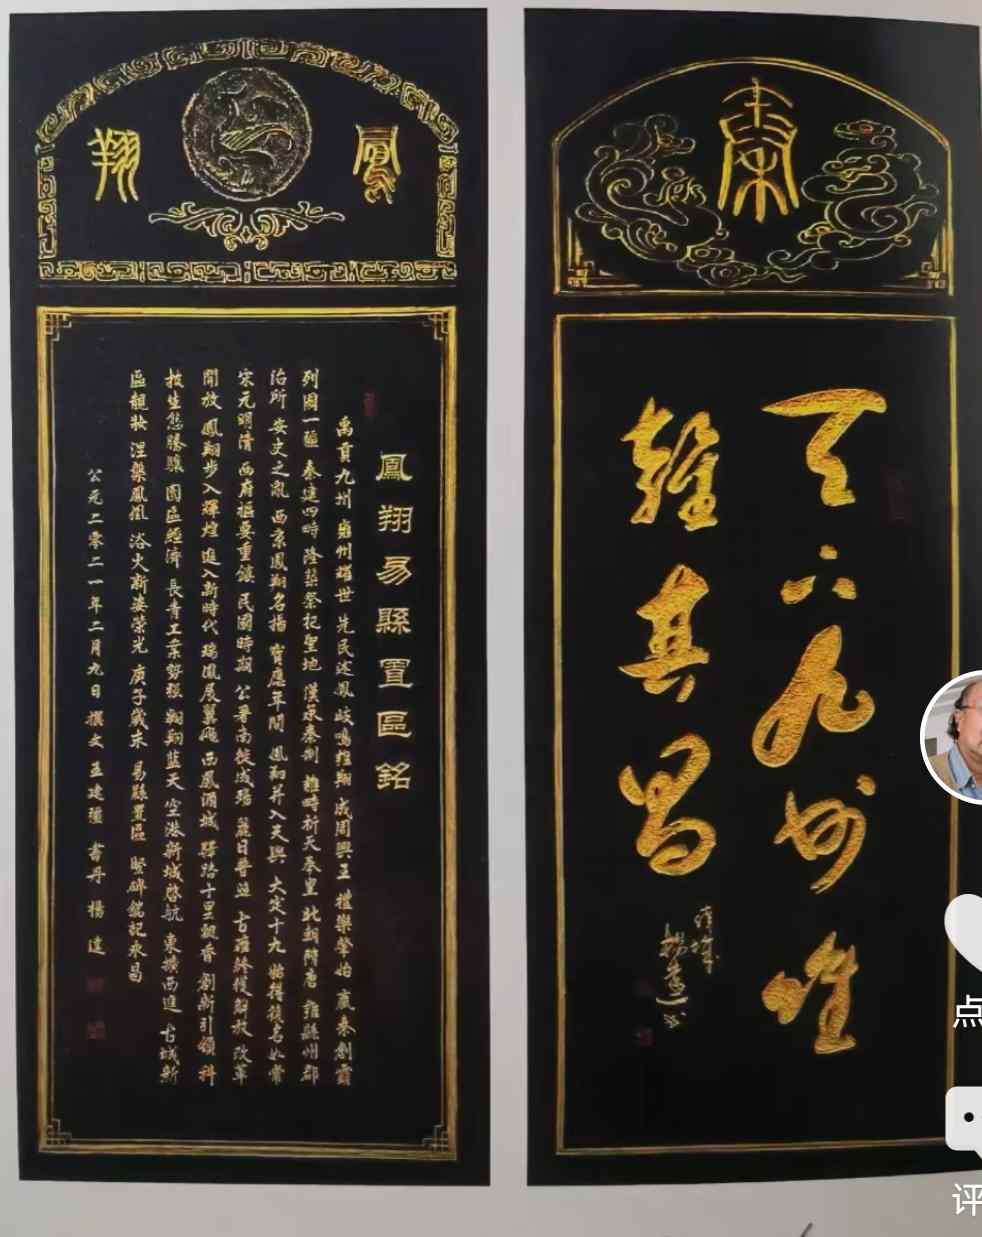 秦
天下九州唯
雍其昌
楊達书
鳳翔
鳳翔易縣置區銘
禹貢九州 雍州耀世 先民逑鳳 岐鳴雍翔 成周興王 禮樂肇始 嬴秦創霸
列國一 秦建四時 隆築祭祀聖地 漢承秦制 雍時祈天奉皇 北朝隋唐 雍縣州郡
治所 安史之亂 西京鳳翔名揚 寶應年間 鳳翔并入天興 大定十九 始得復名如常
宋元明清 西府樞要重鎮 民國時期 公署南徙成殤 麗日普照 古雍終獲解放 改革
開放 鳳翔步入輝煌 進入新時代 瑞鳳展翼飛 西鳳酒城 驛路十里飄香 創新引領 科
技生態騰驤 園區經濟 長青工業勢強 翱翔藍天 空港新城啓航 東擴西進 古城新
區靚妝 涅槃鳳凰 浴火新姿榮光 庚子歲末 易縣置區 堅碑銘記永昌
公元二零二一年二月九日 撰文 孟建疆 書丹 楊達
点
评